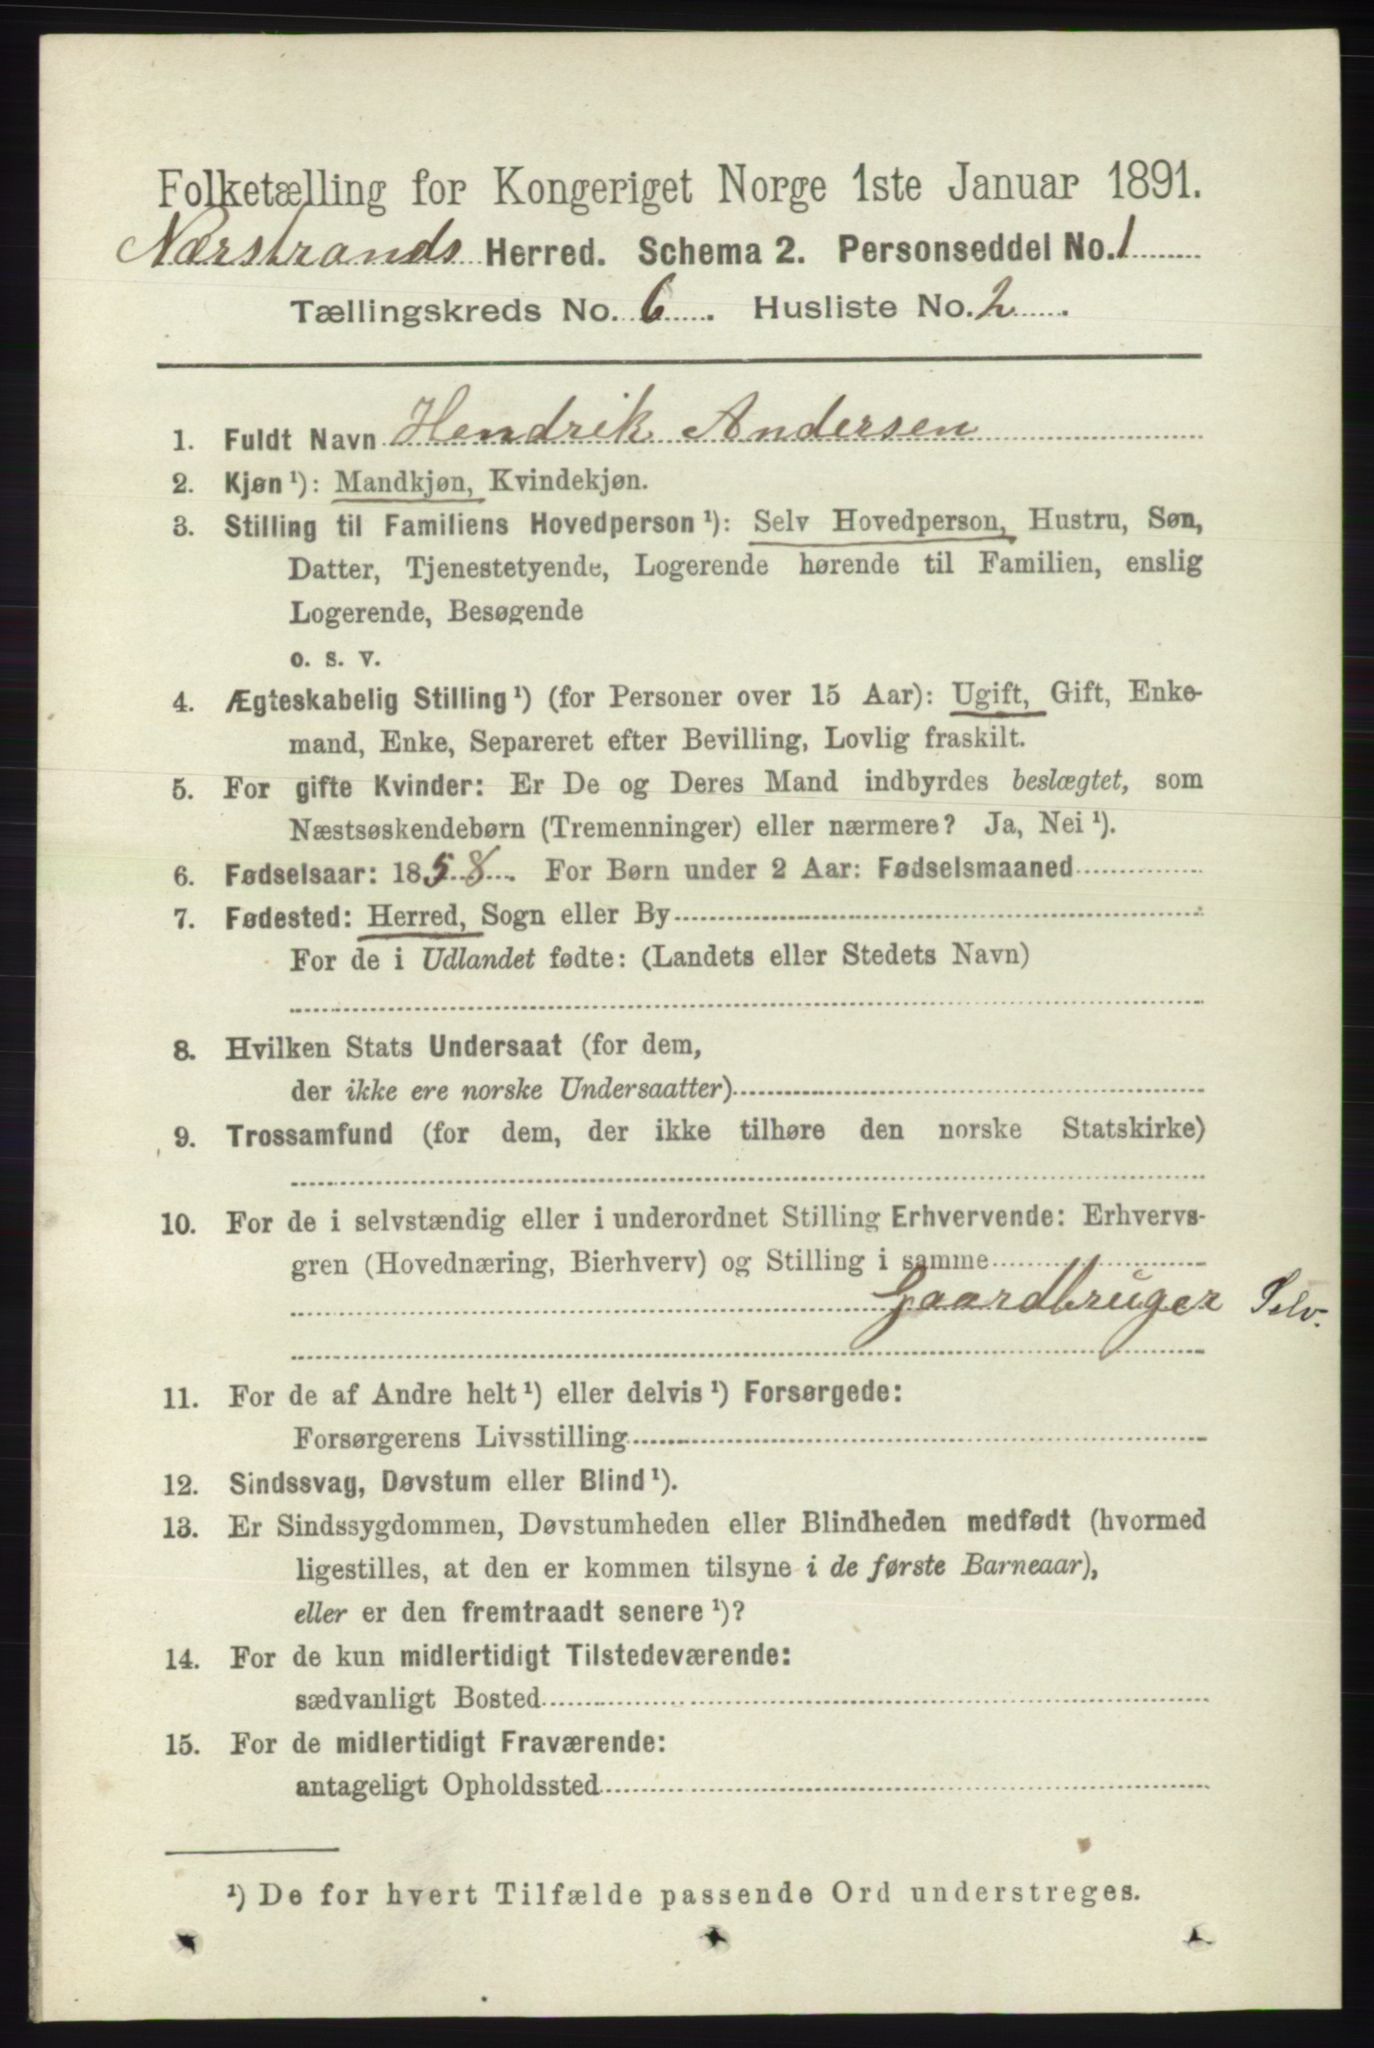 Folketælling for Kongeriget Norge 1ste Januar 1891.
Nærstrands Herred. Schema 2. Personseddel No. 1
Tællingskreds No. 6. Husliste No. 2.
1. Fuldt Navn Hendrik Andersen
2. Kjøn ¹): Mandkjøn, Kvindekjøn.
3. Stilling til Familiens Hovedperson ¹): Selv Hovedperson, Hustru, Søn,
Datter, Tjenestetyende, Logerende hørende til Familien, enslig
Logerende, Besøgende
o. s. v.
4. Ægteskabelig Stilling ¹) (for Personer over 15 Aar): Ugift, Gift, Enke-
mand, Enke, Separeret efter Bevilling, Lovlig fraskilt.
5. For gifte Kvinder: Er De og Deres Mand indbyrdes beslægtet, som
Næstsøskendebørn (Tremenninger) eller nærmere? Ja, Nei ¹).
6. Fødselsaar: 1858. For Børn under 2 Aar: Fødselsmaaned
7. Fødested: Herred, Sogn eller By
For de i Udlandet fødte: (Landets eller Stedets Navn)
8. Hvilken Stats Undersaat (for dem,
der ikke ere norske Undersaatter)
9. Trossamfund (for dem, der ikke tilhøre den norske Statskirke)
10. For de i selvstændig eller i underordnet Stilling Erhvervende: Erhvervs-
gren (Hovednæring, Bierhverv) og Stilling i samme
Gaardbruger Selv.
11. For de af Andre helt ¹) eller delvis ¹) Forsørgede:
Forsørgerens Livsstilling
12. Sindssvag, Døvstum eller Blind ¹).
13. Er Sindssygdommen, Døvstumheden eller Blindheden medfødt (hvormed
ligestilles, at den er kommen tilsyne i de første Barneaar),
eller er den fremtraadt senere ¹)?
14. For de kun midlertidigt Tilstedeværende:
sædvanligt Bosted
15. For de midlertidigt Fraværende:
antageligt Opholdssted
¹) De for hvert Tilfælde passende Ord understreges.